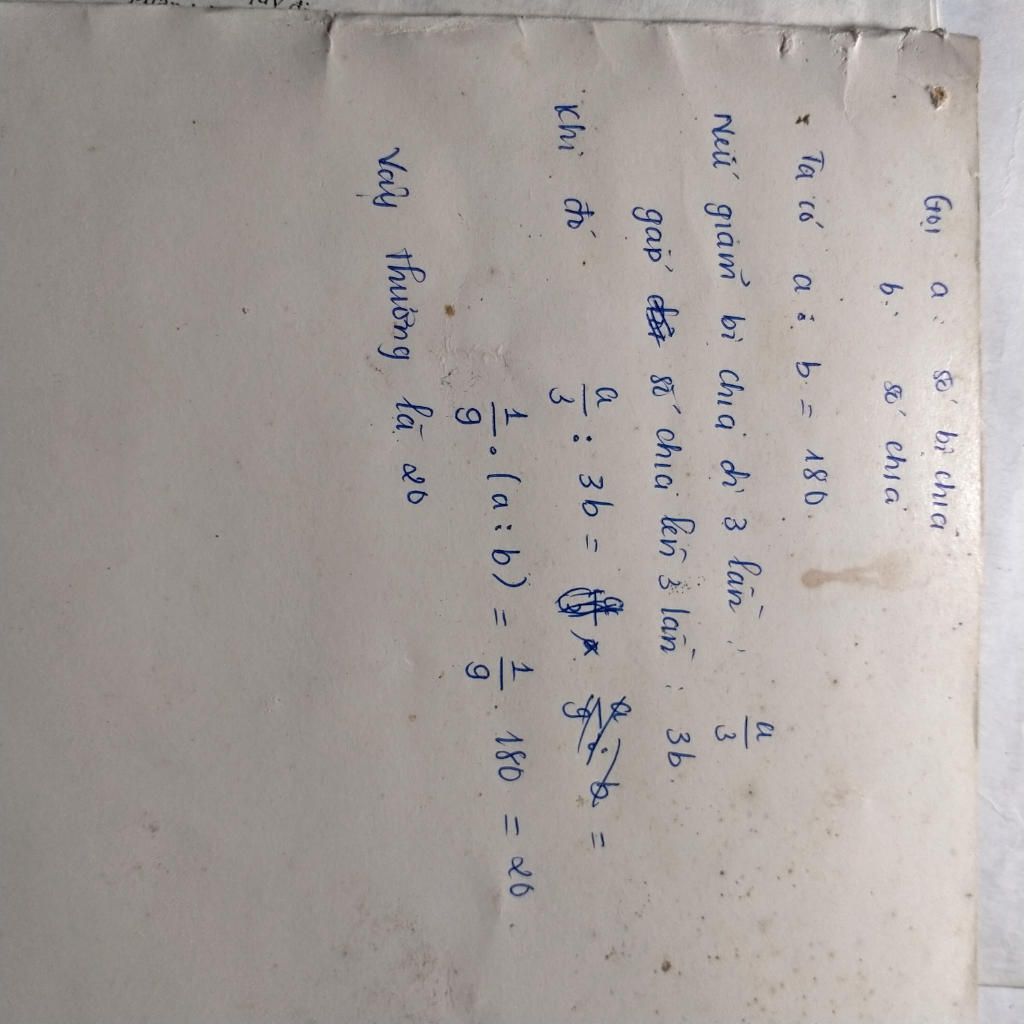 Gọi a: số bị chia
b: số chia
Ta có a : b = 180.
Nếu giảm bị chia đi 3 lần: a/3
gấp số chia lên 3 lần: 3b.
Khi đó a/3 : 3b = =
1/9 . (a : b) = 1/9 . 180 = 20
Vậy thương là 20